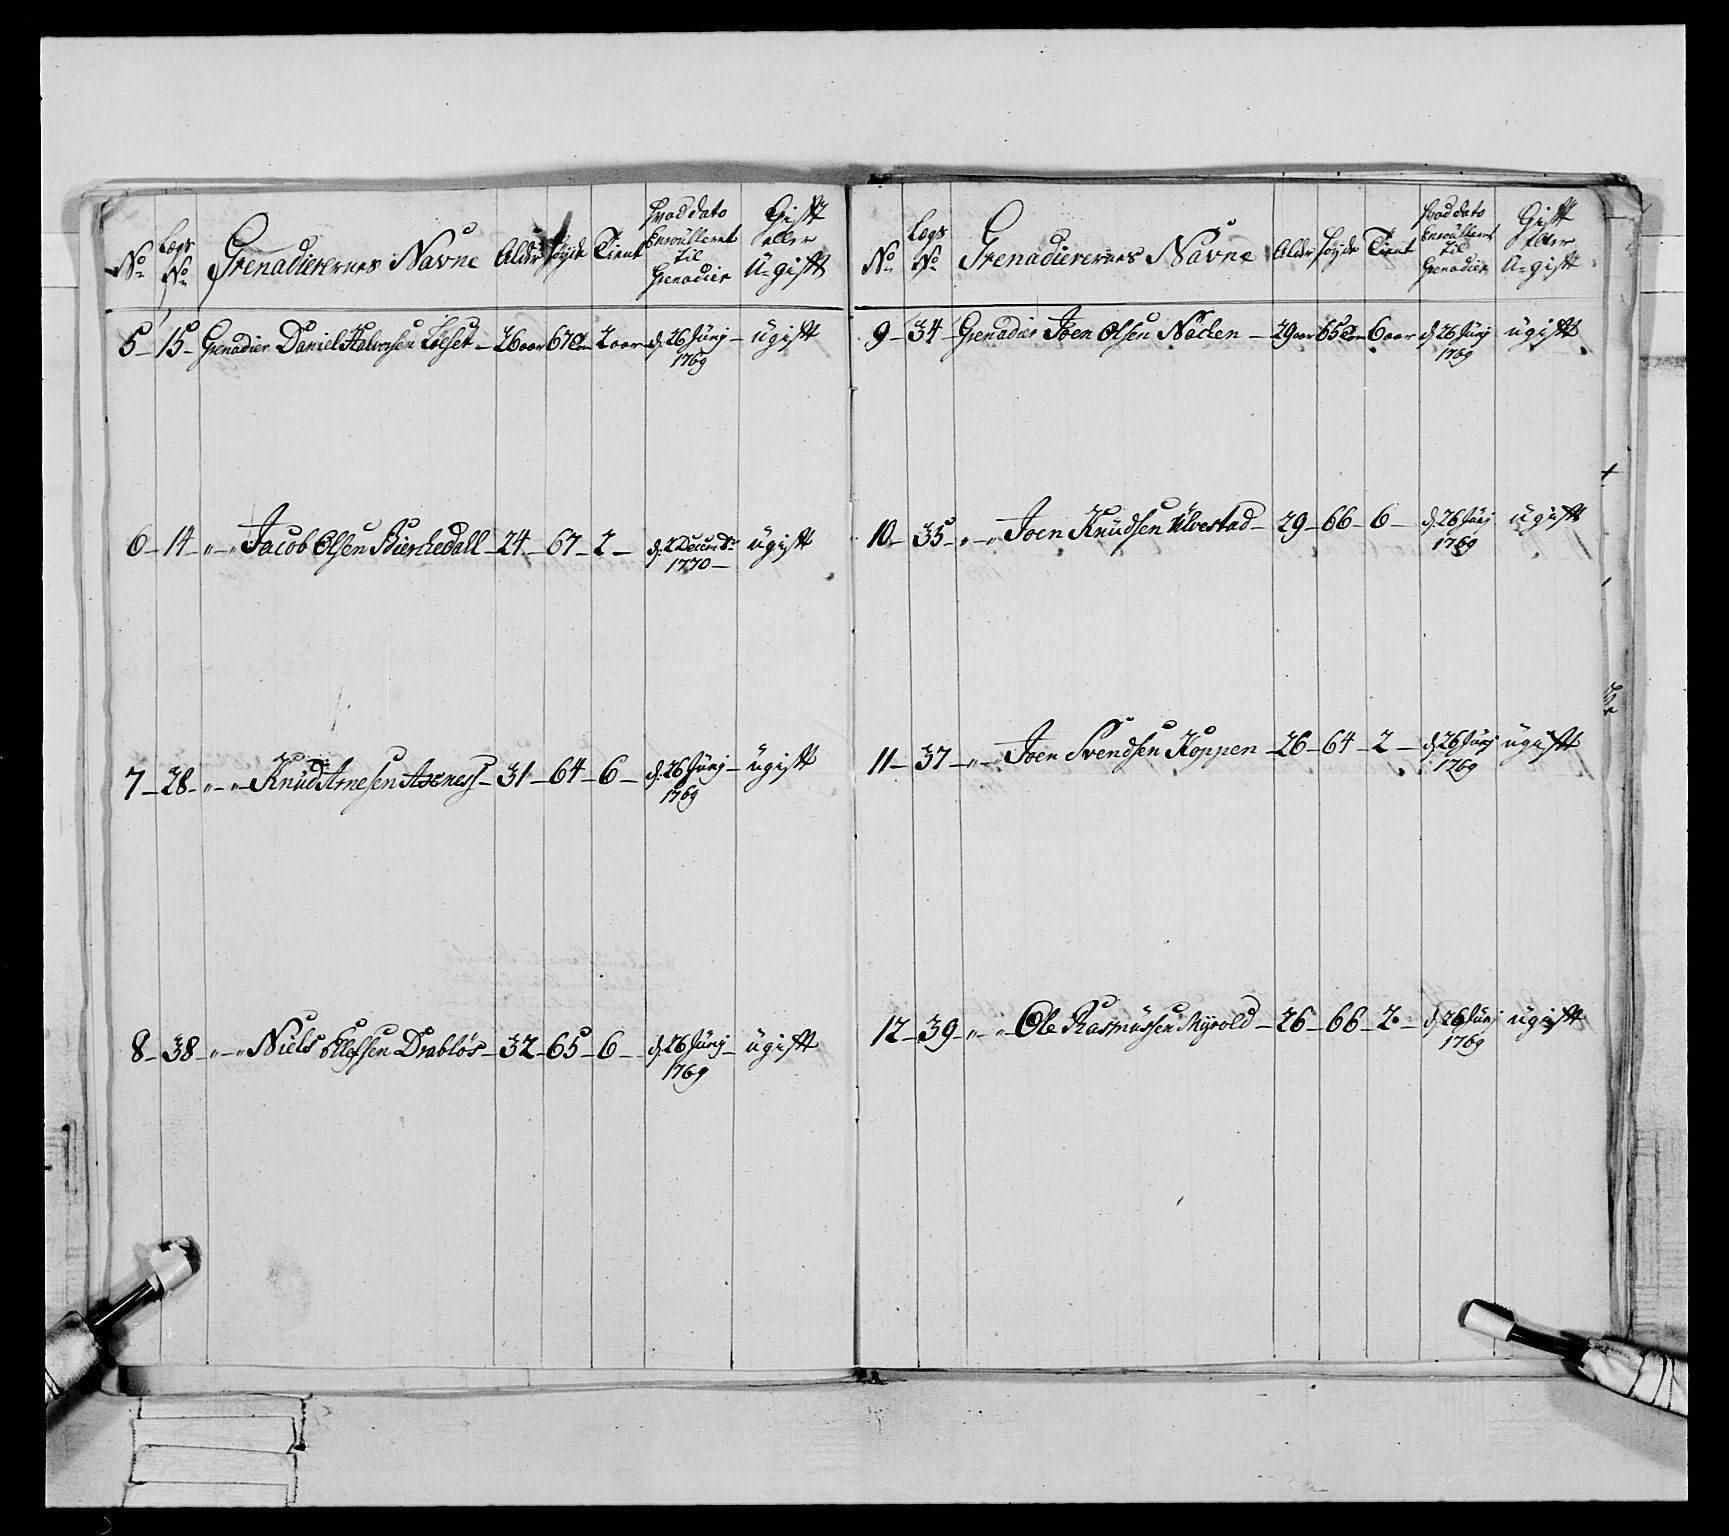 No Lægs No Grenadierernes Navne Alder Høyde Tient Hvad dato Enroulleret til Grenadier Gift eller U-gift
5 – 15 – Grenadier Daniel Halvorsen Løeset – 26 aar 67 Tom 2 aar – d. 26 Junj – ugift
1769
6 – 14 – „ – „ Jacob Olsen Bierkedall – 24 – 67 – 2 – d. 2 Decembr – ugift
1770 –
7 – 28 – „ – „ – Knud Arnesen Aarness – 31 – 64 – 6 – d. 26 Junj – ugift
1769
8 – 38 – „ – „ – Niels Ellefsen Drabløs – 32 – 65 – 6 – d. 26 Junj – ugift
1769
No Lægs No Grenadierernes Navne Alder Høyde Tient Hvad dato Enroulleret til Grenadier Gift eller U-gift
9 – 34 – Grenadier Joen Olsen Nacken – 29 aar 65 Tom 6 aar d. 26 Junj ugift
1769
10 – 35 – „ – „ – Joen Knudsen Ulvestad – 29 – 66 – 6 – d. 26 Junj ugift
1769
11 – 37 – „ – „ – Joen Svendsen Hoppen – 26 – 64 – 2 – d. 26 Junj ugift
1769
12 – 39 – „ – „ – Ole Rasmussen Myrold – 26 – 66 – 2 – d. 26 Junj ugift
1769